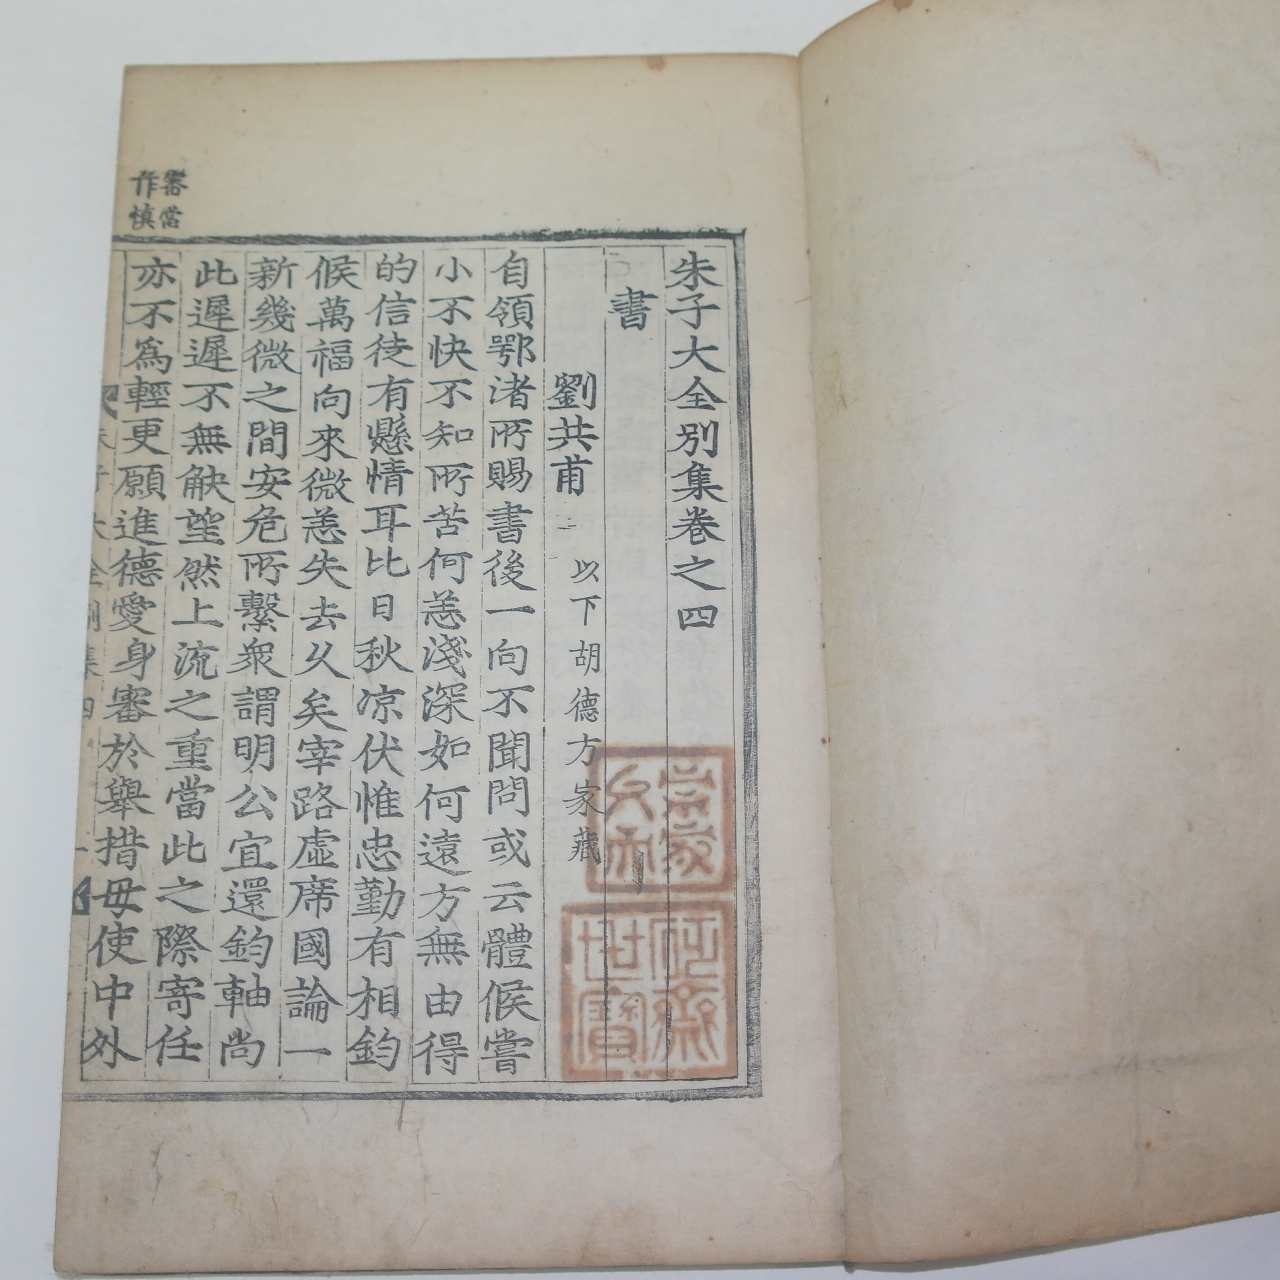 朱子大全別集卷之四
書
劉共甫 以下胡德方家藏
自領鄂渚所賜書後一向不聞問或云體候嘗
小不快不知所苦何恙淺深如何遠方無由得
的信徒有懸情耳比日秋凉伏惟忠勤有相鈞
候萬福向來微恙失去久矣宰路虛席國論一
新幾微之間安危所繫衆謂明公宜還鈞軸尚
此遲遲不無觖望然上流之重當此之際寄任
亦不爲輕更願進德愛身審於舉措毋使中外
審當
作愼
朱子大全別集四
世寶